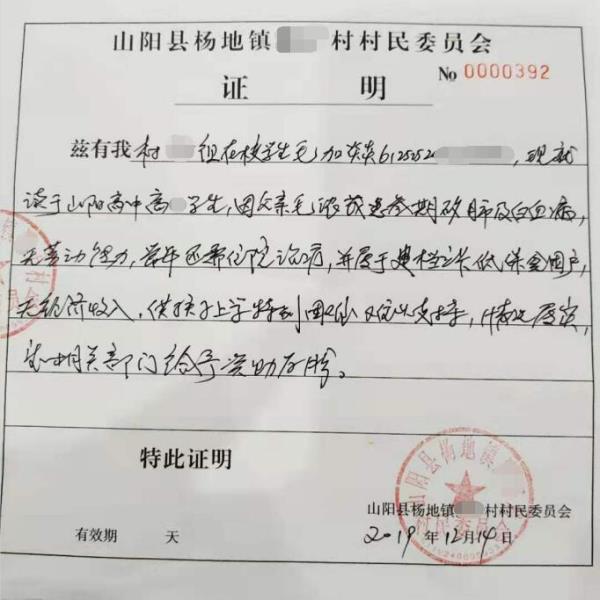 山阳县杨地镇 村村民委员会
证 明
№ 0000392
兹有我村 组在校学生毛加 6125252 ，现就
读于山阳高中高 学生，因父亲毛 患叁期矽肺及白血病，
无劳动能力，常年医都住院治病，并属于建档立卡低保 户，
无经济收入，供孩子上学特别困难 难以支持，情况属实，
相关部门给予资助为盼。
特此证明
山阳县杨地镇 村村民委员会
有效期 天
2019年12月14日
山阳县杨地镇
村民委员会